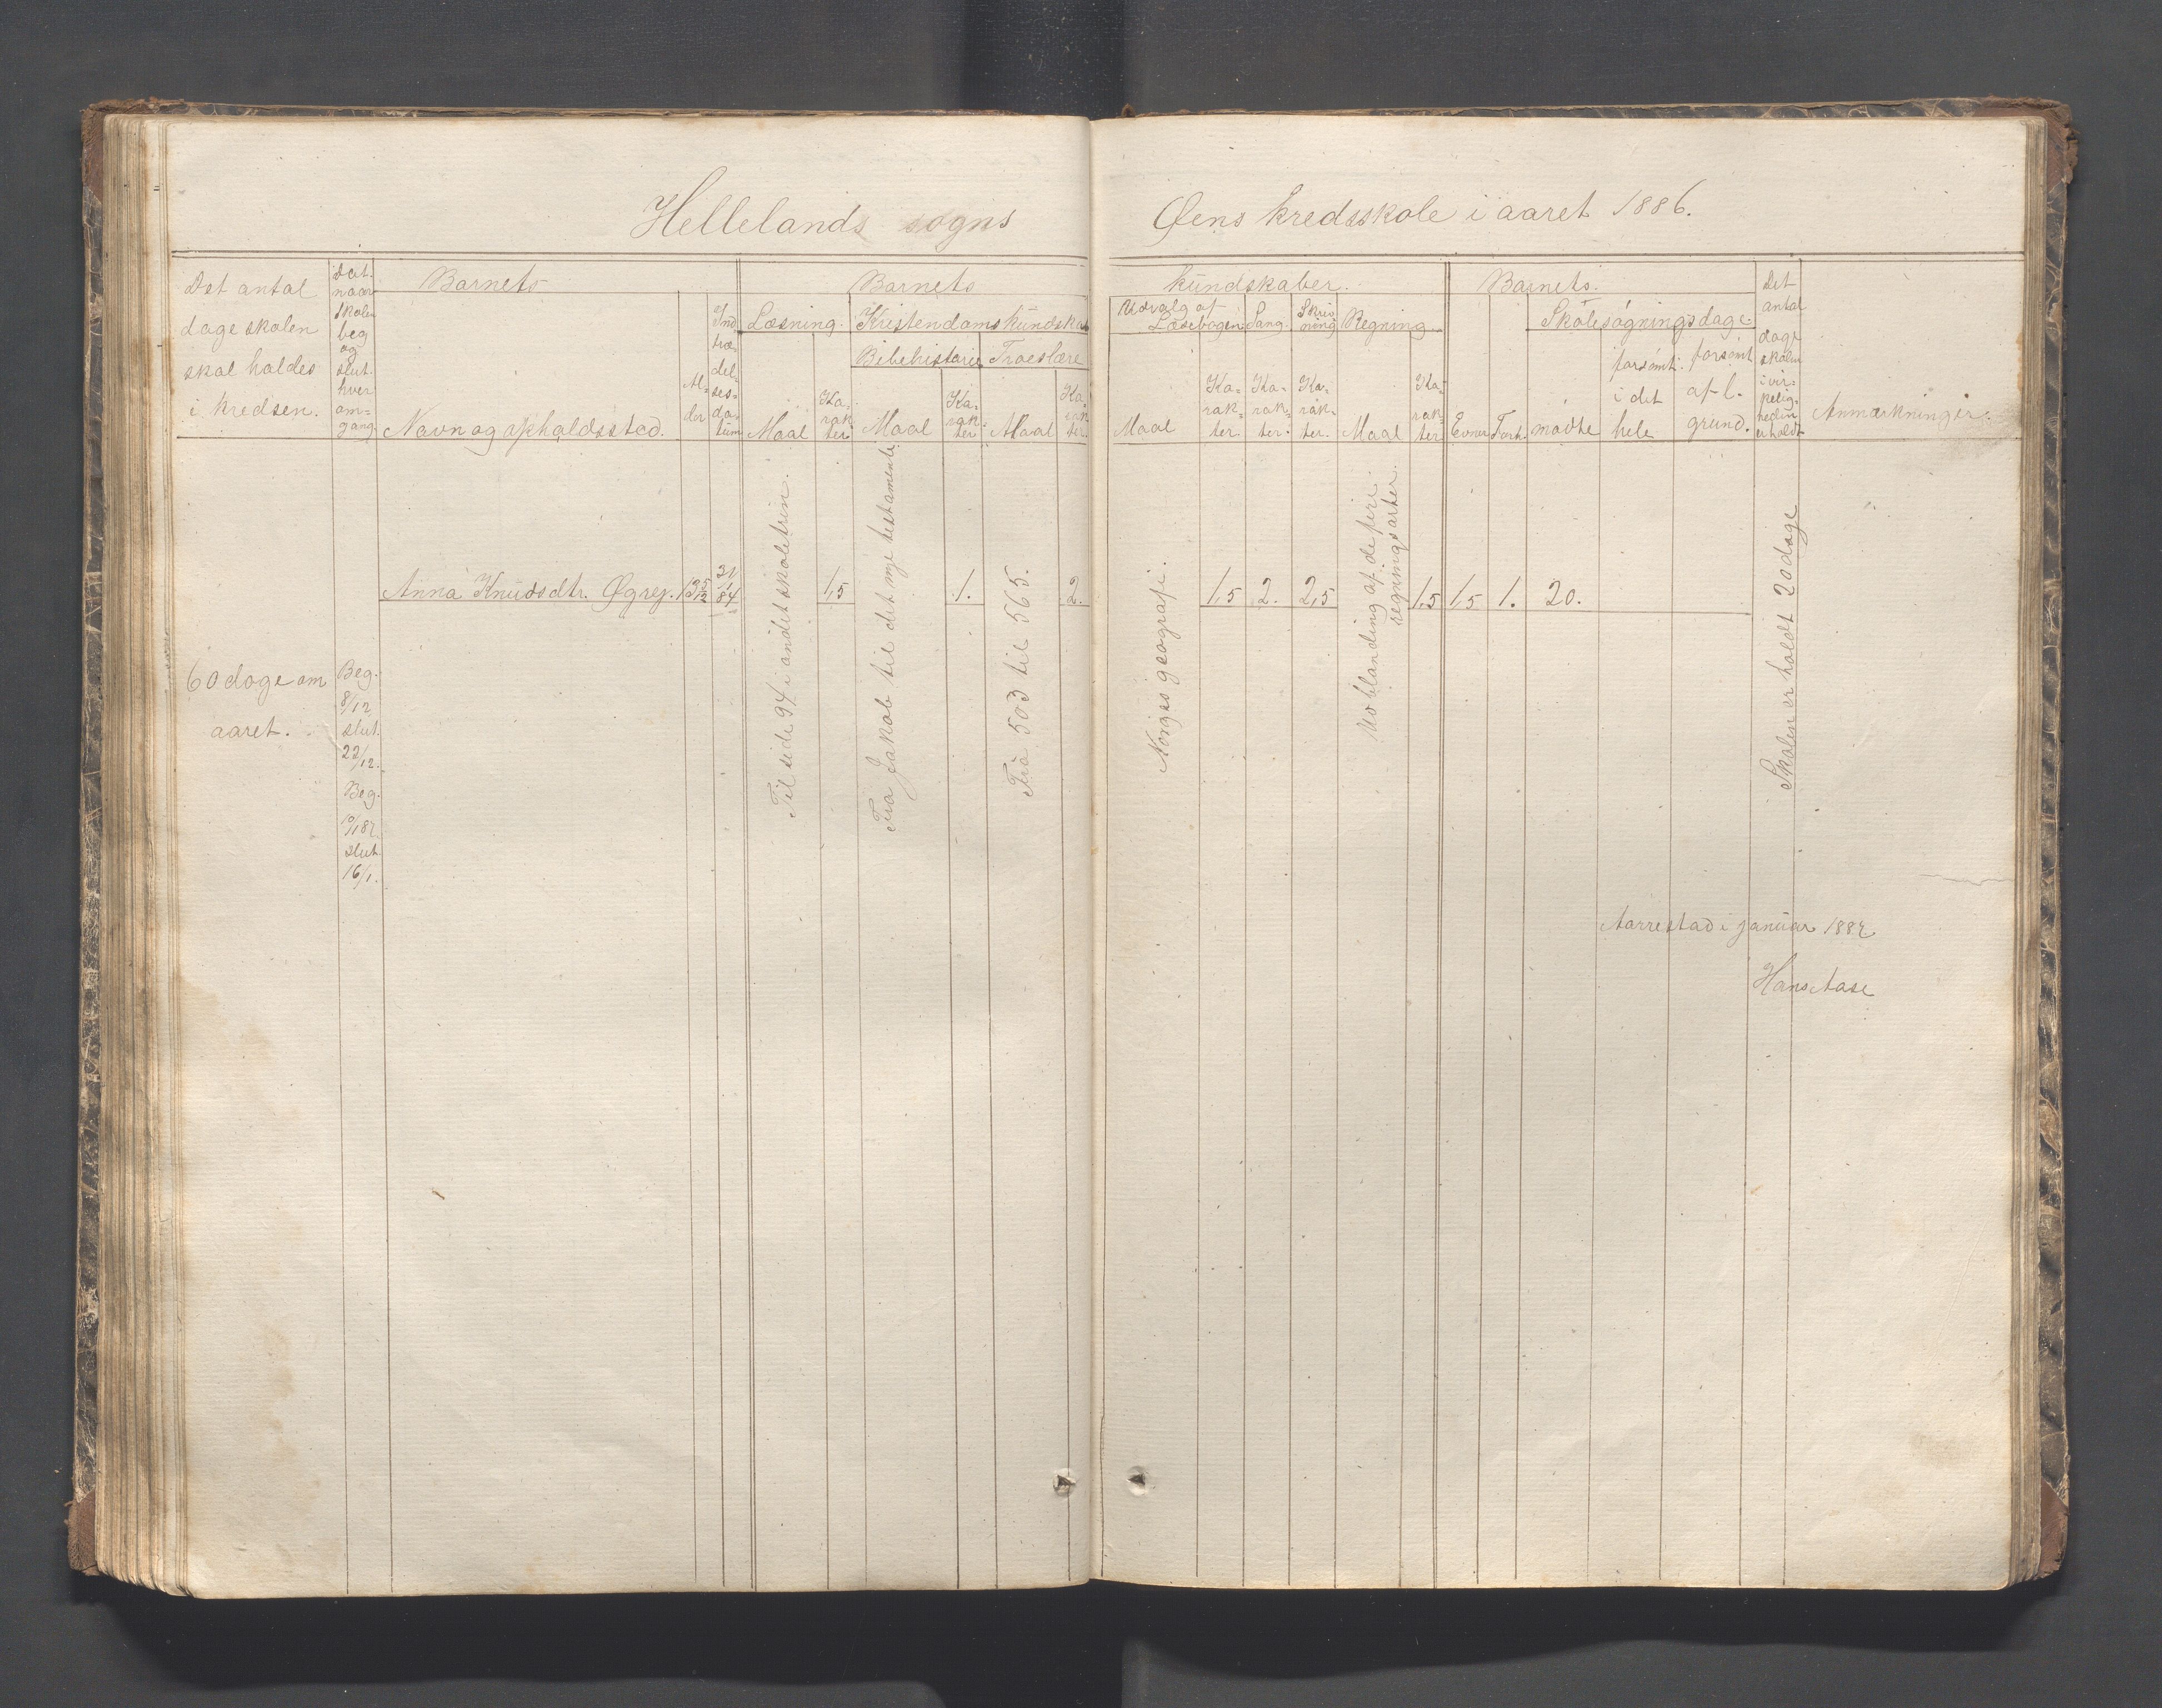 Hellelands sogns
Øens kredsskole i aaret 1886.
Det antal
dage skolen
skal holdes
i kredsen.
Dat.
naar
skolen
beg
og
slut.
hver
om=
gang
Barnets
Navn og opholdssted.
Al=
der
Ind
træ=
del=
ses=
da=
tum
Barnets
Læsning.
Maal
Ka=
rak
ter
Kristendomskundskab
Bibelhistorie
Maal
Ka=
rak
ter
Troeslære
Maal
Ka=
rak
ter.
kundskaber.
Udvalg af
Læsebogen
Maal
Ka=
rak=
ter
Sang.
Ka=
rak=
ter.
Skriv
ning
Ka=
rak=
ter.
Regning
Maal
Ka=
rak
ter
Barnets.
Evner
Forh.
Skolesøgningsdage.
mødte
forsømt.
i det
hele
forsømt
af l.
grund.
Det
antal
dage
skolen
i vir=
kelig=
heden
er holdt
Anmærkninger.
60 dage om
aaret.
Beg.
8/12
slut.
22/12.
Beg.
slut.
16/1.
Anna Knudsdtr. Øgrey.
Til side 94 i andet skoletrin.
1,5
Fra Jakob til det nye testamente
1.
Fra 503 til 565.
2.
Norges geografi.
1,5
2.
2,5
Ublanding af de fire
regningsarter.
1,5
1,5
1.
20.
Skolen er holdt 20 dage
Aarrestad i januar 1887
Hans Aase